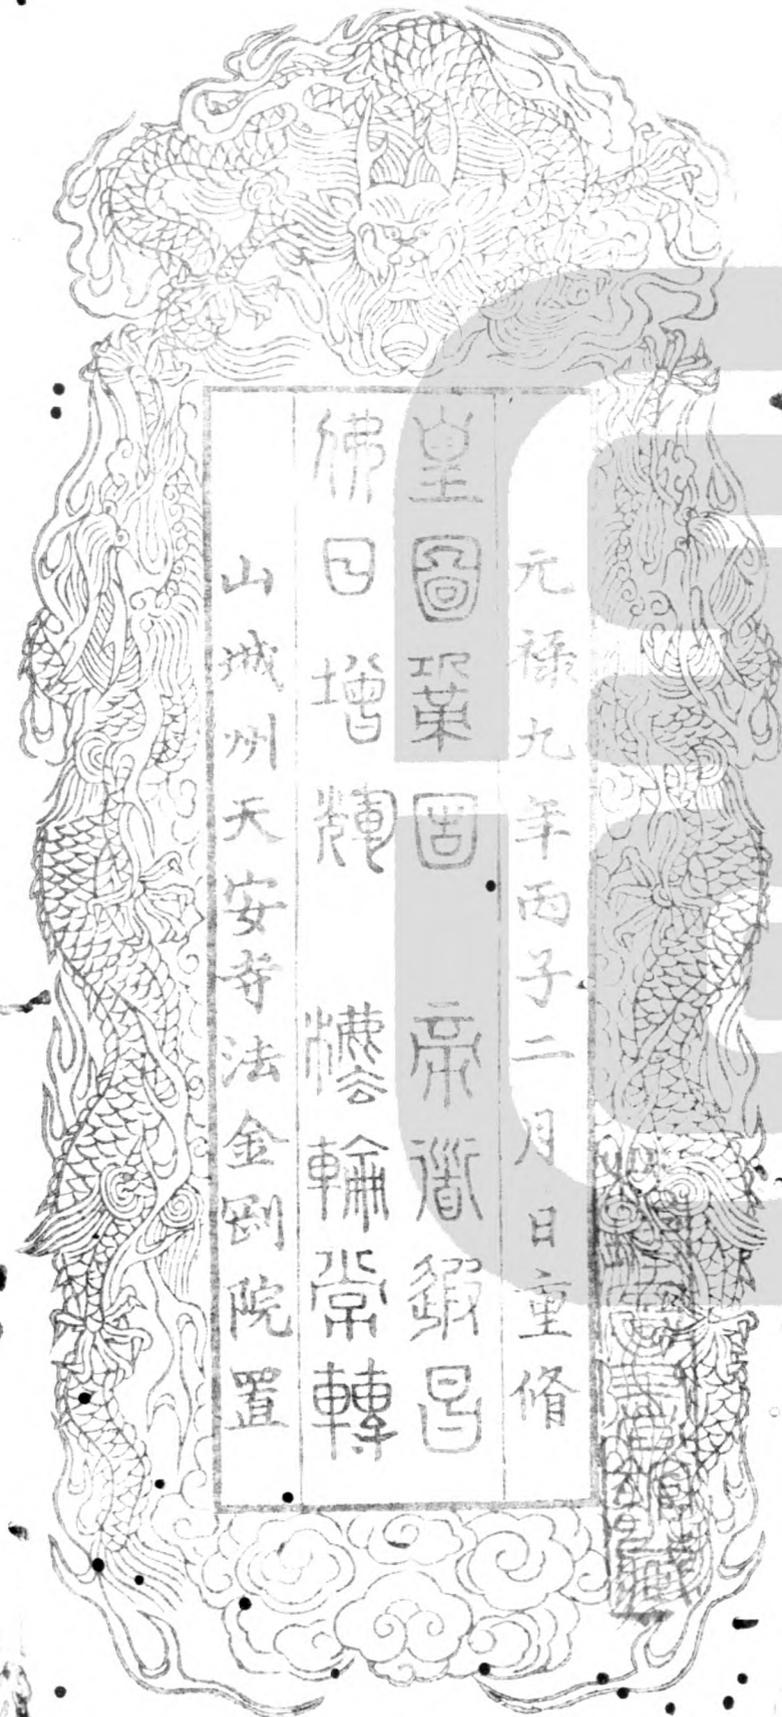 元禄九年丙子二月 日重脩
皇圖鞏固 帝衜遐昌
佛日增輝 灋輪常轉
山城州天安寺法金剛院置